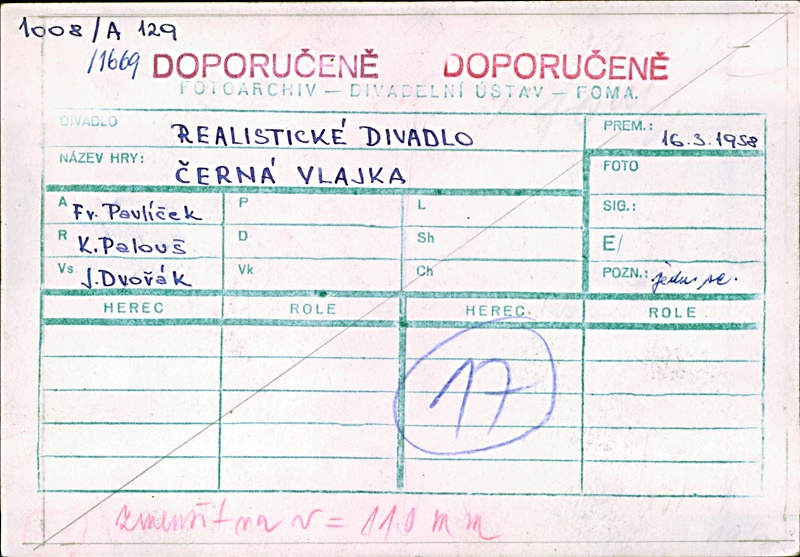 1008/A 129
/1669 DOPORUČENĚ DOPORUČENĚ
FOTOARCHIV — DIVADELNÍ ÚSTAV — FOMA.
DIVADLO REALISTICKÉ DIVADLO PREM.: 16.3.1958
NÁZEV HRY: ČERNÁ VLAJKA FOTO
A Fr. Pavlíček P L SIG.:
R K. Palouš D Sh E/
Vs J. Dvořák Vk Ch POZN.:
HEREC ROLE HEREC ROLE
17
zmenšit na v = 110 mm